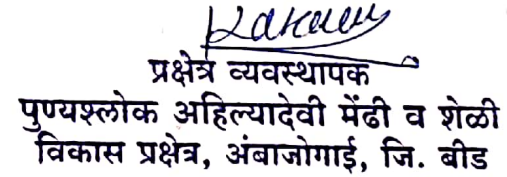 प्रक्षेत्र व्यवस्थापक
पुण्यश्लोक अहिल्यादेवी मेंढी व शेळी
विकास प्रक्षेत्र, अंबाजोगाई, जि. बीड